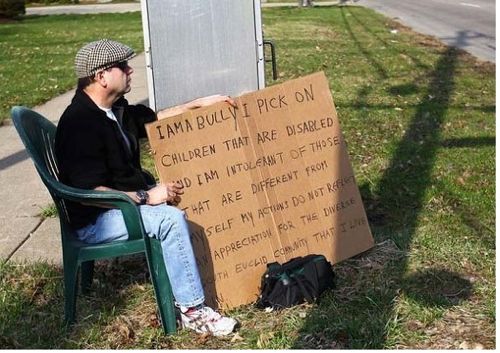 I AM A BULLY! I PICK ON
CHILDREN THAT ARE DISABLED
AND I AM INTOLERANT OF THOSE
THAT ARE DIFFERENT FROM
MYSELF MY ACTIONS DO NOT REFLECT
AN APPRECIATION FOR THE DIVERSE
SOUTH EUCLID COMMUNITY THAT I LIVE